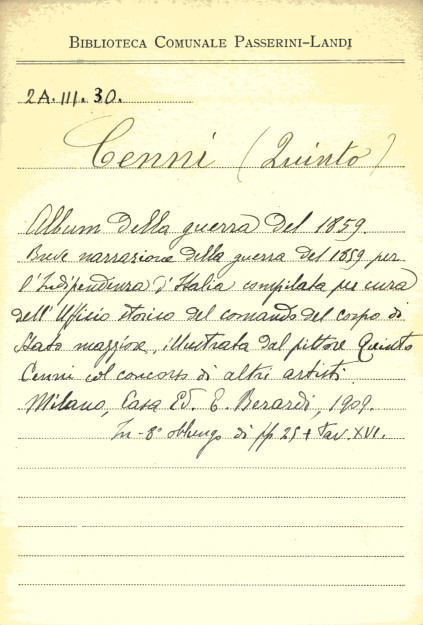 BIBLIOTECA COMUNALE PASSERINI-LANDI
2A.III.30.
Cenni (Quinto)
Album della guerra del 1859.
Breve narrazione della guerra del 1859 per
l'Indipendenza d'Italia compilata per cura
dell'Ufficio storico del comando del corpo di
Stato maggiore, illustrata dal pittore Quinto
Cenni col concorso di altri artisti.
Milano, Casa Ed. E. Berardi, 1909.
In-8° oblungo di pp 25 + Tav. XVI.